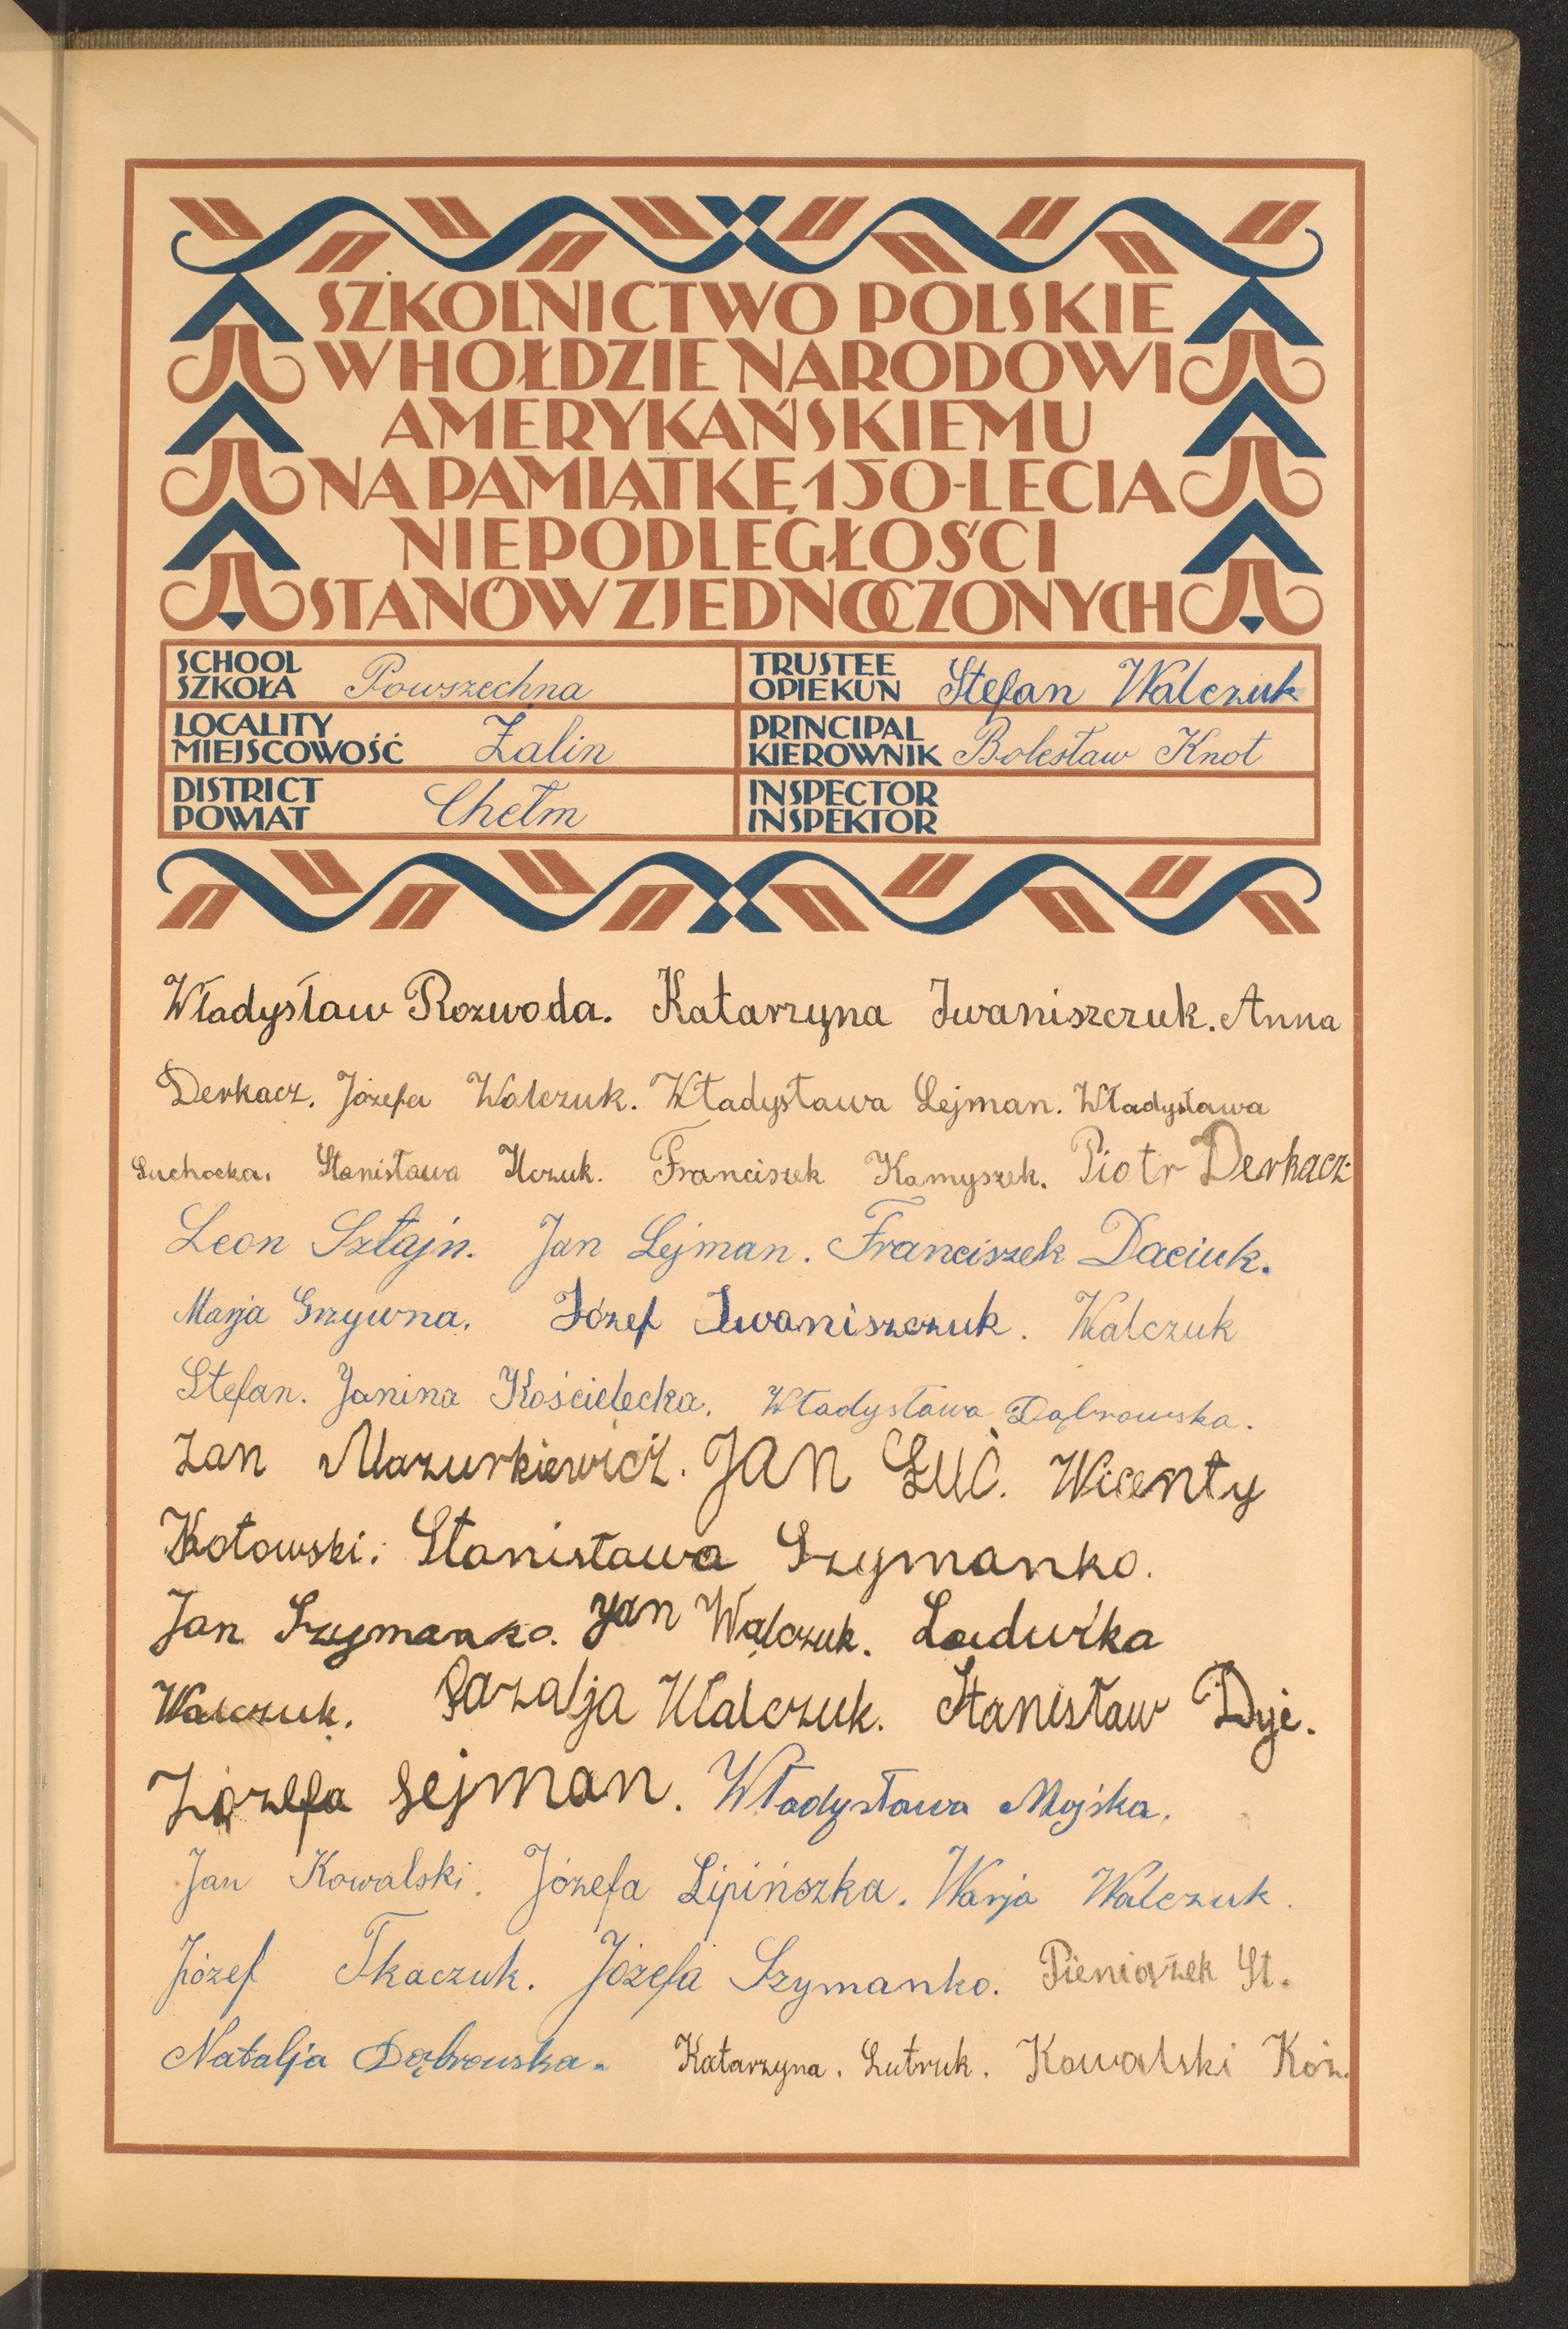 SZKOLNICTWO POLSKIE
W HOŁDZIE NARODOWI
AMERYKAŃSKIEMU
NA PAMIĄTKĘ 150-LECIA
NIEPODLEGŁOŚCI
STANÓW ZJEDNOCZONYCH
SCHOOL
SZKOŁA Powszechna
TRUSTEE
OPIEKUN Stefan Walczuk
LOCALITY
MIEJSCOWOŚĆ Żalin
PRINCIPAL
KIEROWNIK Bolesław Knot
DISTRICT
POWIAT Chełm
INSPECTOR
INSPEKTOR
Władysław Rozwoda. Katarzyna Iwaniszczuk. Anna
Derkacz. Józefa Walczuk. Władysława Lejman. Władysława
Suchocka. Stanisława Ilczuk. Franciszek Kamyszek. Piotr Derkacz
Leon Sztajn. Jan Lejman. Franciszek Daciuk.
Marja Grzywna. Józef Iwaniszczuk. Walczuk
Stefan. Janina Kościelecka. Władysława Dąbrowska.
Jan Mazurkiewicz. JAN Łuć. Wicenty
Kotowski. Stanisława Szymanko.
Jan Szymanko. Jan Walczuk. Ludwika
Walczuk. Walczuk. Stanisław Dyć.
Józefa Lejman. Władysława Mojska.
Jan Kowalski. Józefa Lipińszka. Warja Walczuk.
Józef Tkaczuk. Józefa Szymanko. Pieniążek St.
Natalja Dąbrowska. Katarzyna. Kowalski Kaź.